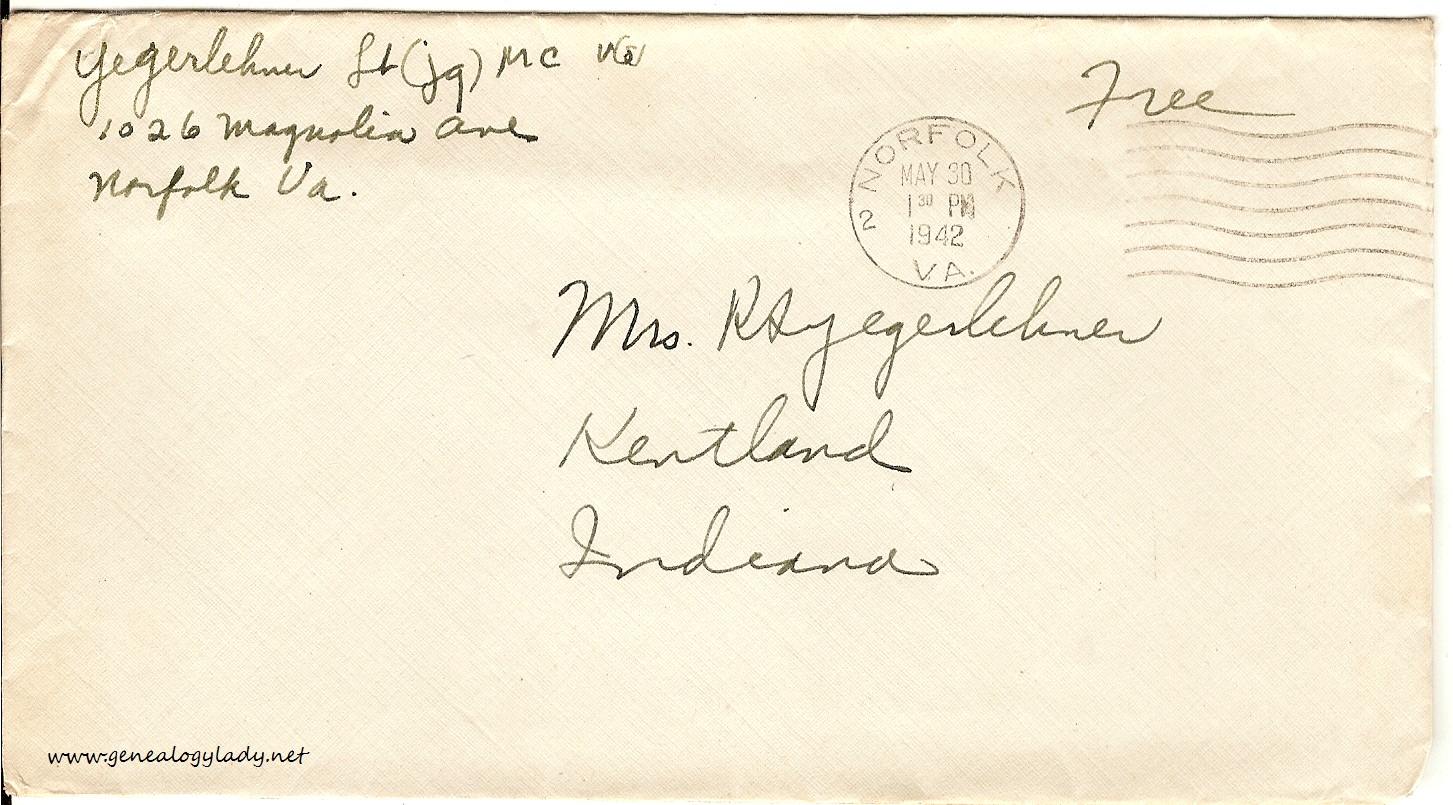 Yegerlehner Lt (jg) MC
1026 Magnolia Ave
Norfolk Va.
Free
NORFOLK
MAY 30
1 30 PM
1942
2
VA.
Mrs. RH Yegerlehner
Kentland
Indiana
www.genealogylady.net